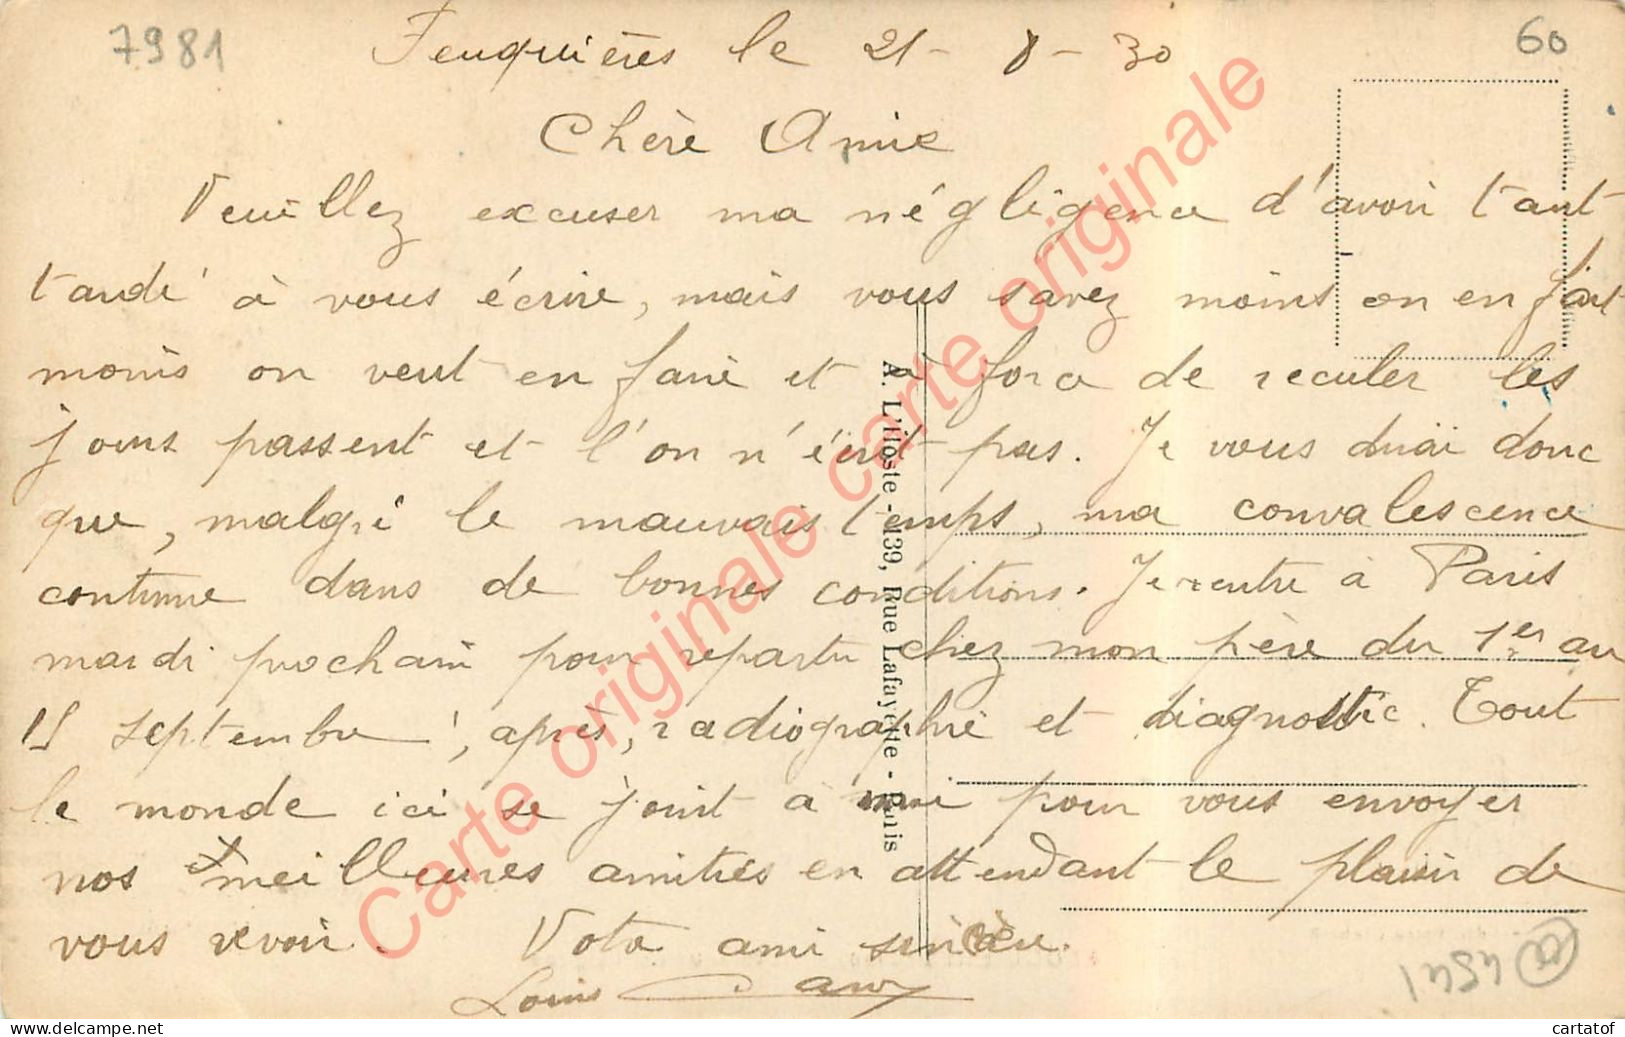 7981
60
Feuquières le 21 - 8 - 30
Chère Amie
Veuillez excuser ma négligence d'avoir tant
tardé à vous écrire, mais vous savez moins on en fait
moins on veut en faire et à force de reculer les
jours passent et l'on n'écrit pas. Je vous dirai donc
que, malgré le mauvais temps, ma convalescence
continue dans de bonnes conditions. Je rentre à Paris
mardi prochain pour repartir chez mon père du 1er au
15 septembre, après, radiographie et diagnostic. Tout
le monde ici se joint à moi pour vous envoyer
nos meilleures amitiés en attendant le plaisir de
vous revoir. Votre ami sincère.
Louis
A. L'Hoste - 139, Rue Lafayette - Paris
Carte originale carte originale carte originale
4541
www.delcampe.net
cartatof